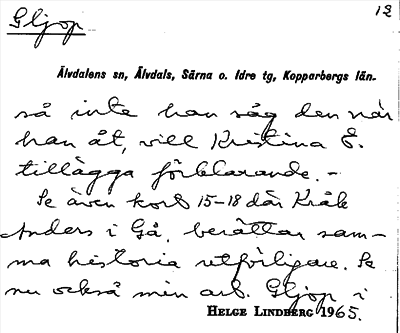 Gljop
12
Älvdalens sn, Älvdals, Särna o. Idre tg, Kopparbergs län.
så inte han såg den när
han åt, vill Kristina E.
tillägga förklarande. –
Se även kort 15-18 där Kråk
Anders i Gå. berättar sam-
ma historia utförligare. Se
nu också min arb. Gljop i
HELGE LINDBERG 1965.